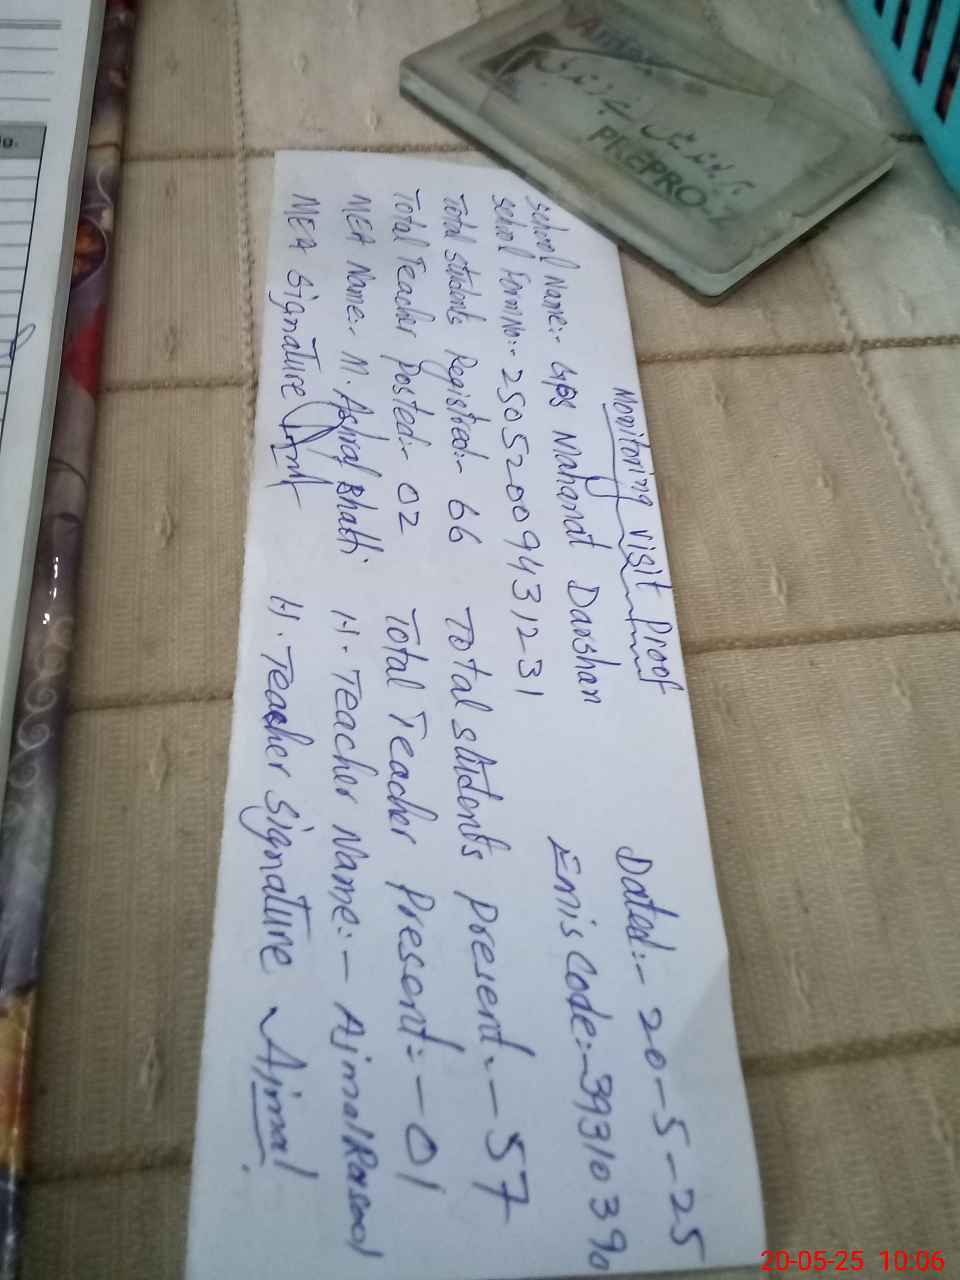 Monitoring visit Proof Dated:- 20-5-25
School Name:- GPS Mahanat Darshan Emis Code:- 39310390
School Form No:- 25052009431231
Total Students Registred:- 66 Total Students Present:- 57
Total Teacher Posted:- 02 Total Teacher Present:- 01
MEA Name:- M. Ashraf Bhatti H. Teacher Name:- Ajmal Rasool
MEA Signature H. Teacher Signature Ajmal
PREPRO-
No.
20-05-25 10:06